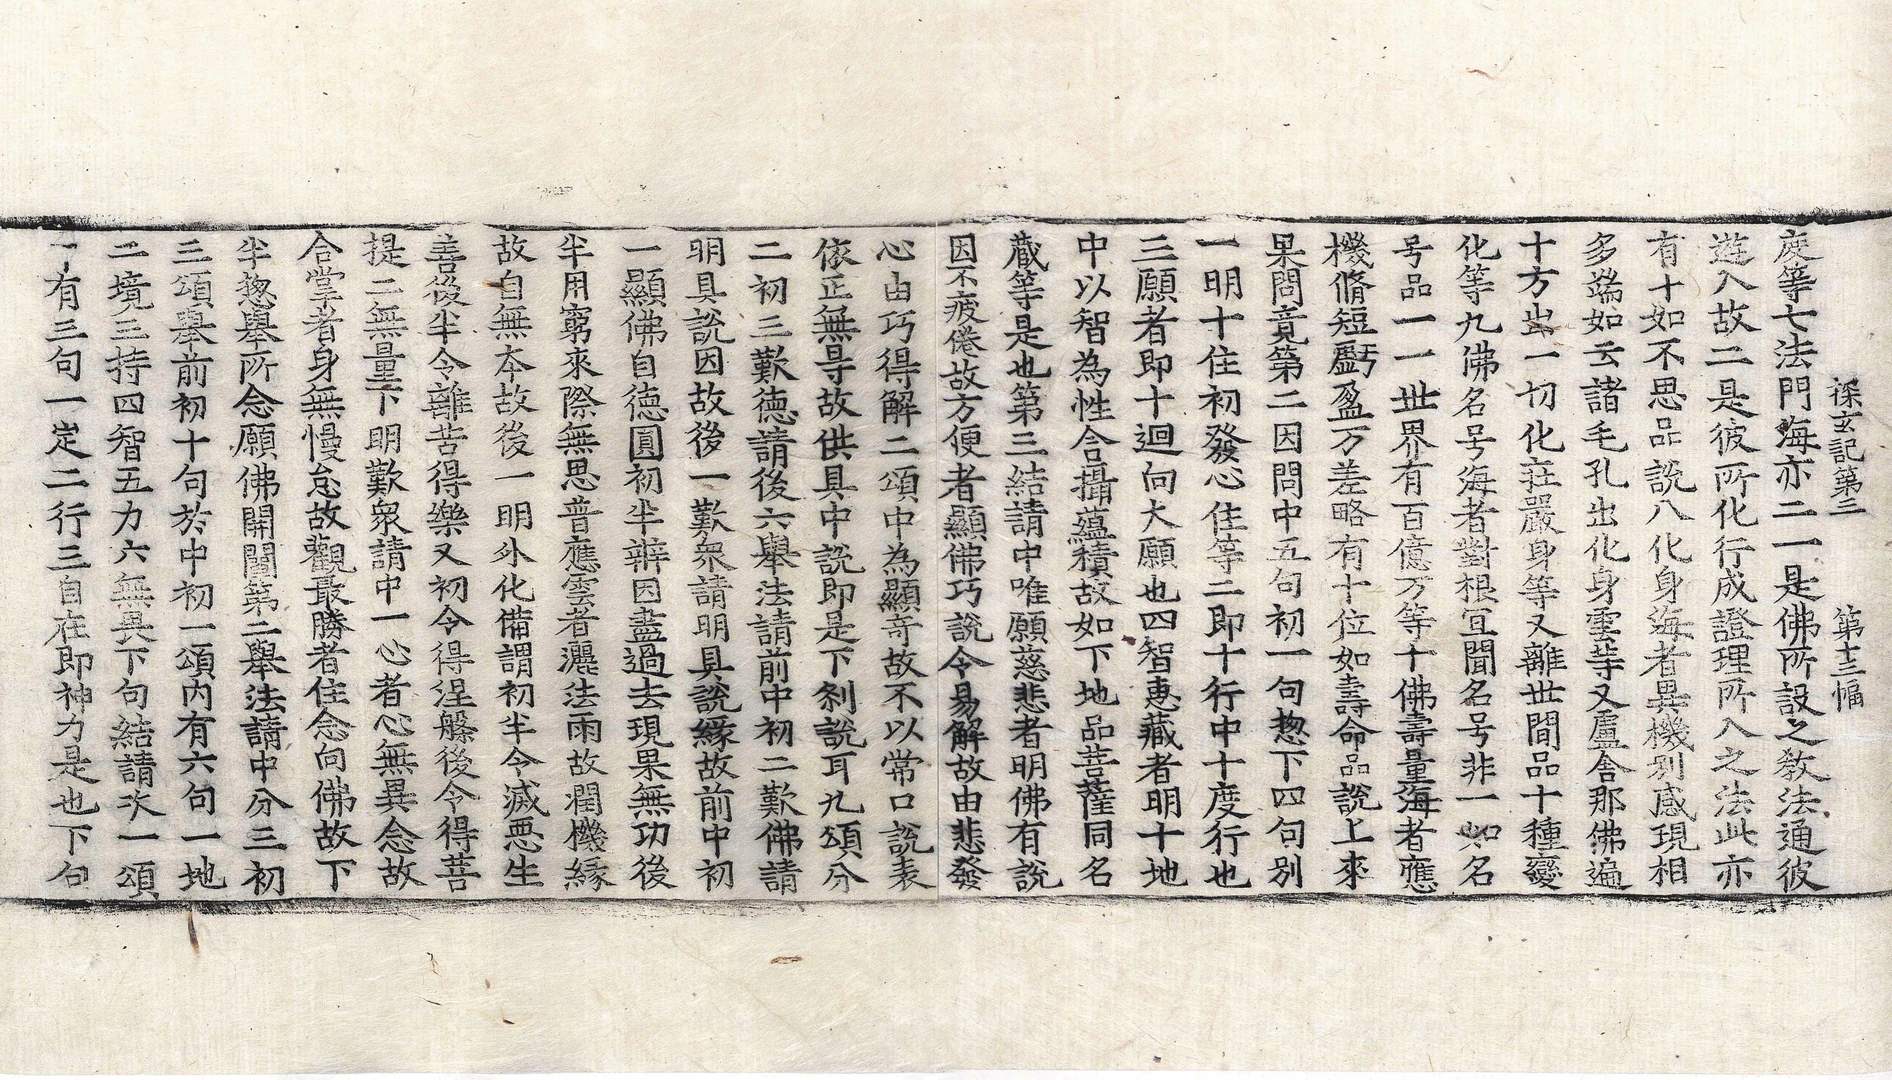 探玄記第三　第十三幅
度等七法門海亦二一是佛所設之敎法通彼
遊入故二是彼所化行成證理所入之法此亦
有十如不思品說八化身海者異機別感現相
多端如云諸毛孔出化身雲等又盧舍那佛遍
十方出一切化莊嚴身等又離世間品十種變
化等九佛名号海者對根宣聞名号非一如名
号品一一世界有百億万等十佛壽量海者應
機脩短虧盈万差略有十位如壽命品說上來
果問竟第二因問中五句初一句惣下四句別
一明十住初發心住等二即十行中十度行也
三願者即十迴向大願也四智惠藏者明十地
中以智為性含攝蘊積故如下地品菩薩同名
藏等是也第三結請中唯願慈悲者明佛有說
因不疲倦故方便者顯佛巧說令易解故由悲發
心由巧得解二頌中為顯奇故不以常口說表
依正無㝵故供具中說即是下刹說耳九頌分
二初三歎德請後六舉法請前中初二歎佛請
明具說因故後一歎衆請明具說緣故前中初
一顯佛自德圓初半辨因盡過去現果無功後
半用窮來際無思普應雲者灑法雨故潤機緣
故自無本故後一明外化備謂初半令滅惡生
善後半令離苦得樂又初令得涅槃後令得菩
提二無量下明歎衆請中一心者心無異念故
合掌者身無慢怠故觀最勝者住念向佛故下
半惣舉所念願佛開闡第二舉法請中分三初
三頌舉前初十句於中初一頌內有六句一地
二境三持四智五力六無異下句結請次一頌
了有三句一定二行三自在即神力是也下句